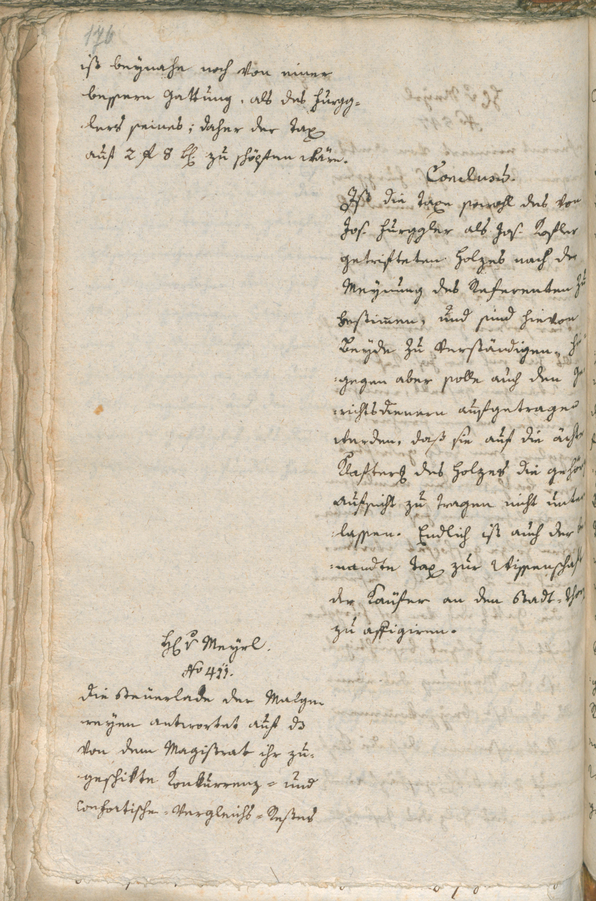 176
ist beynahe noch von einer
bessern Gattung, als des Hürgg-
lers seines; daher der Tax
auf 2 f 8 xr. zu schöpfen wäre.
Conclusum.
Ist die Taxe sowohl des von
Jos. Hürggler als Jos. Kofler
getrifteten Holzes nach der
Meynung des Referenten zu
bestimen, und sind hievon
Beyde zu verständigen, hin
gegen aber solle auch den Ge
richtsdienern aufgetragen
werden, daß sie auf die ächte
Klafterß des Holzes die gehörige
Aufsicht zu tragen nicht unter
lassen. Endlich ist auch der
nandte Tax zur Wissenschaft
der Käufer an dem Stadt-Thor
zu affigiren.
H. v Meyrl.
No 411.
Die Steuerlade der Malgre
reyen antwortet auf das
von dem Magistrat ihr zu-
geschikte Konkurrenz- und
Consortische-Vergleichs-